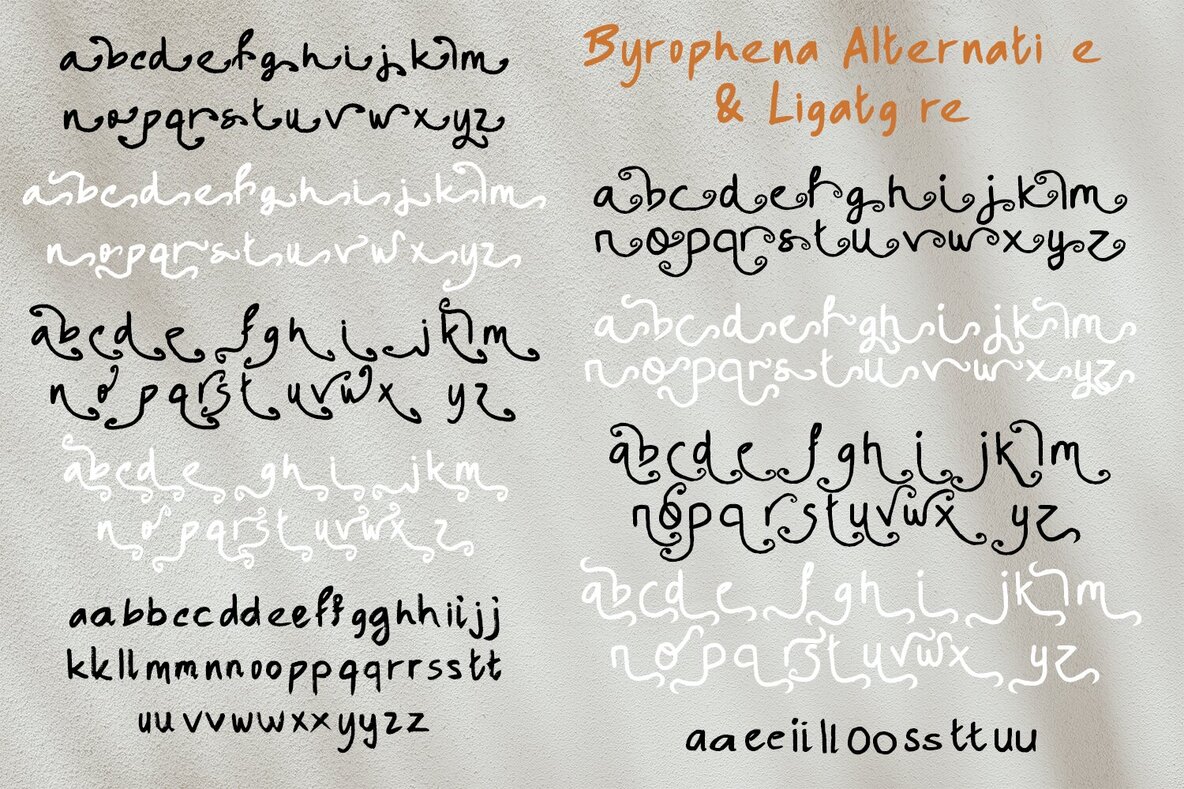 abcdefghijklm
nopqrstuvwxyz
abcdefghijklm
nopqrstuvwxyz
abcd e fghi jklm
no pqrst uvwx yz
abcde ghi jkm
no pqrst uvwx z
aabbccddeeffgghhiijj
kkllmmnnooppqqrrsstt
uuvvwwxxyyzz
Byrophena Alternati e
& Ligatg re
abcdefghijklm
nopqrstuvwxyz
abcdefghijklm
nopqrstuvwxyz
abcde fghi jklm
nopqrstuvwx yz
abcde fghi jklm
nopqrstuvwx yz
aaeeiilloossttuu